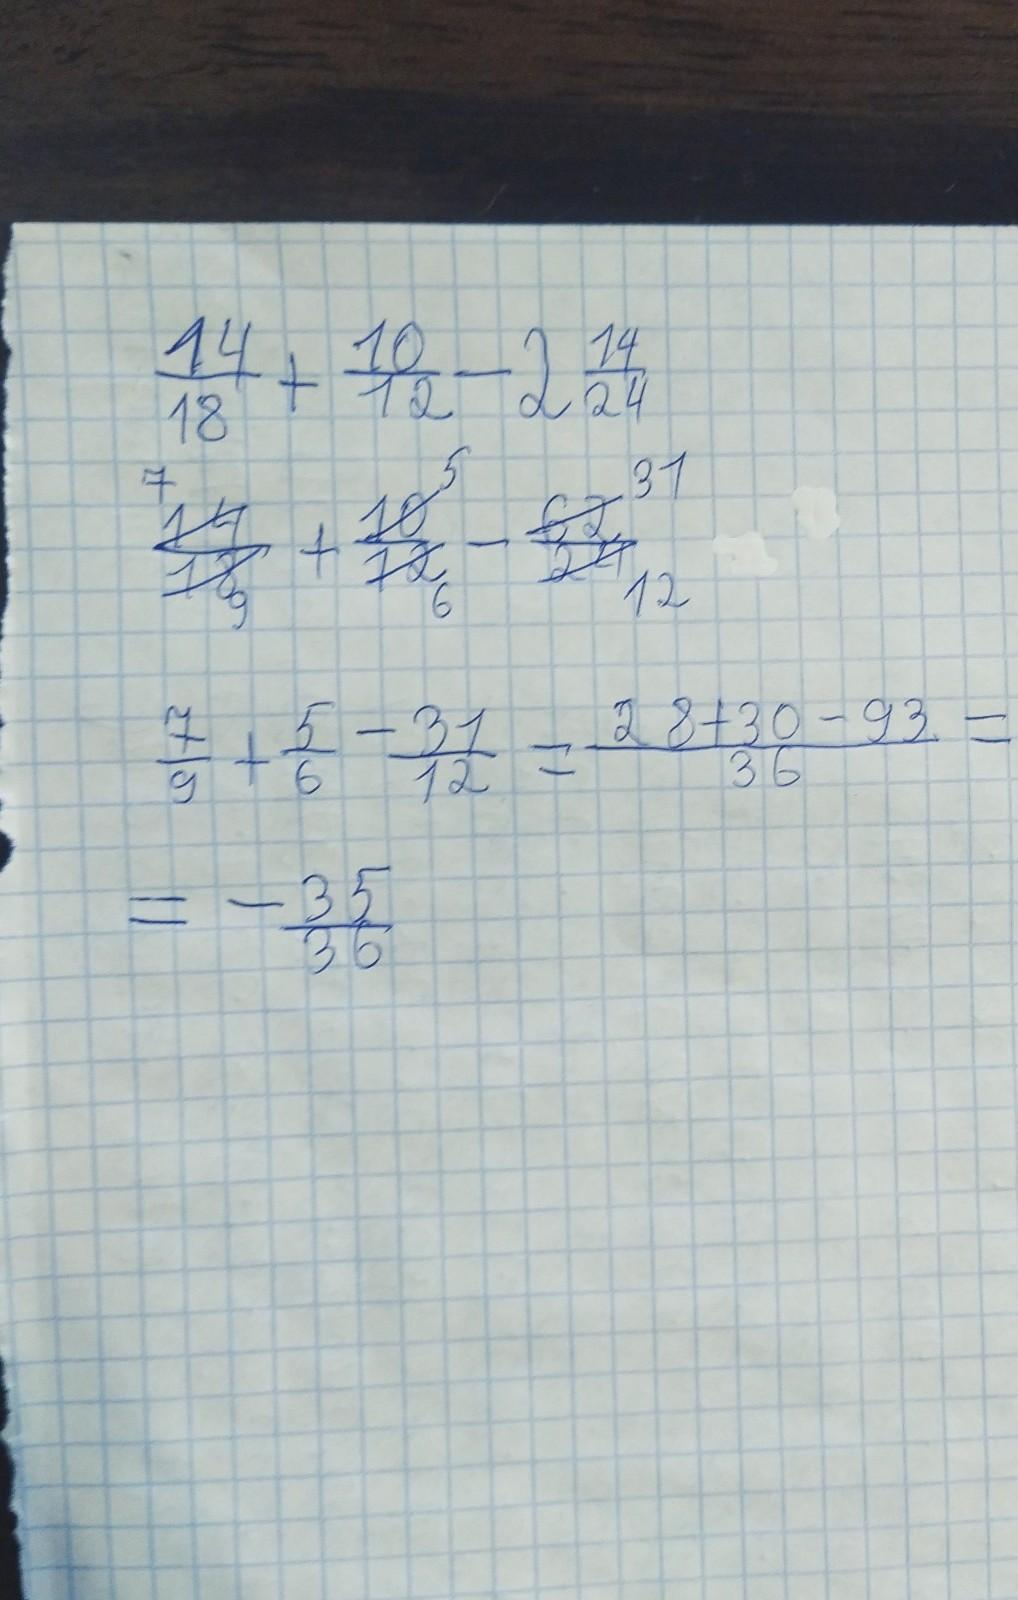 14/18 + 10/12 - 2 14/24
7 14/18 9 + 10/12 5 6 - 62/24 31 12
7/9 + 5/6 - 31/12 = 28+30-93/36 =
= - 35/36